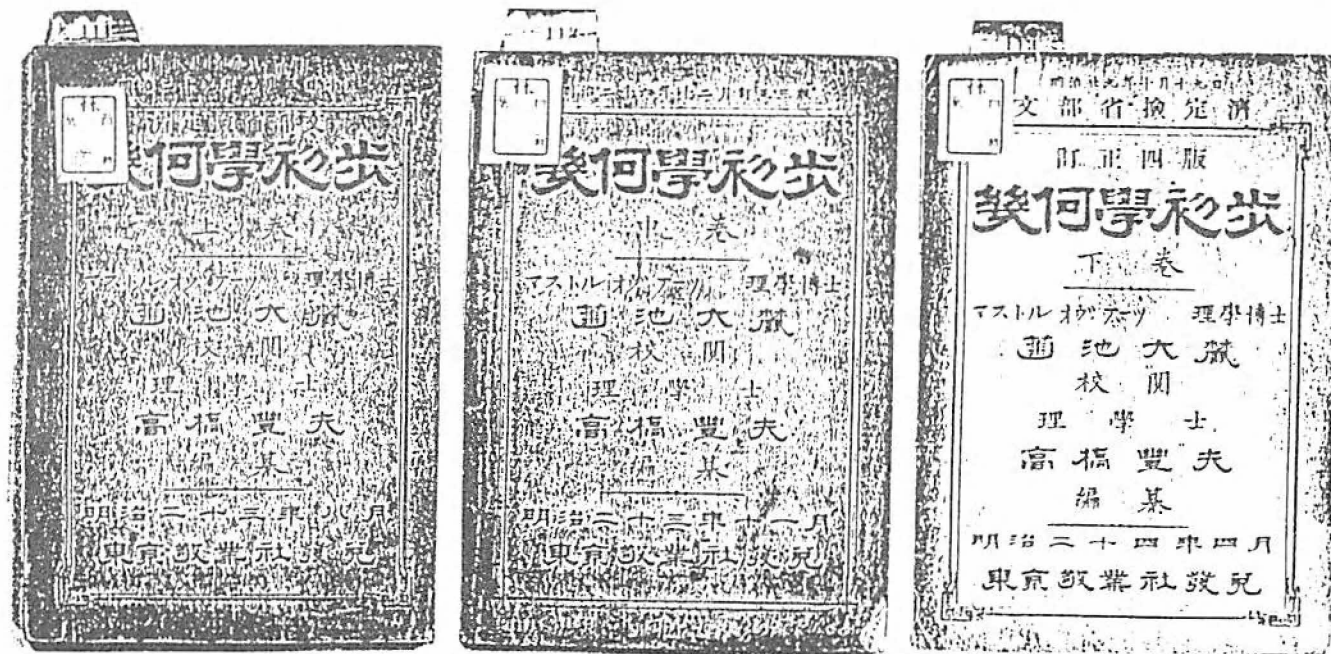 幾何學初歩
上卷
マストルオヴアーツ 理學博士
菊池大麓
校閲
理學士
高橋豐夫
編纂
明治二十三年八月
東京敬業社發兌
幾何學初歩
中卷
マストルオヴアーツ 理學博士
菊池大麓
校閲
理學士
高橋豐夫
編纂
明治二十三年十一月
東京敬業社發兌
明治廿九年十月十九日
文部省檢定濟
訂正四版
幾何學初歩
下卷
マストルオヴアーツ 理學博士
菊池大麓
校閲
理學士
高橋豐夫
編纂
明治二十四年四月
東京敬業社發兌